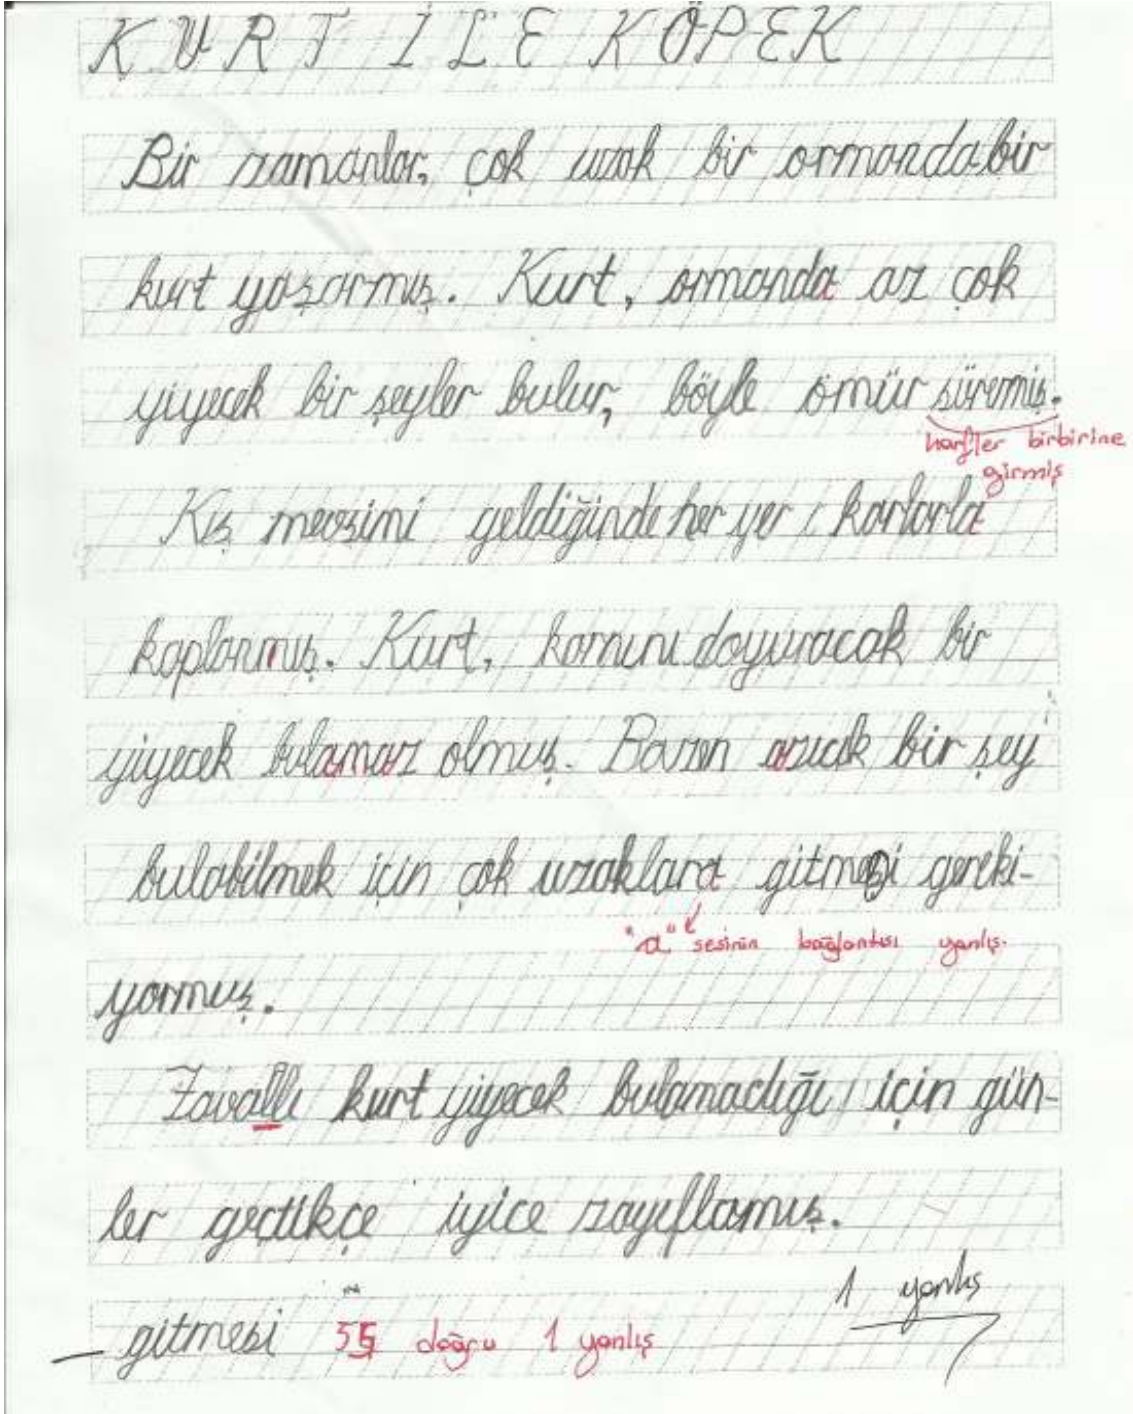 KURT İLE KÖPEK
Bir zamanlar, çok uzak bir ormanda bir
kurt yaşarmış. Kurt, ormanda az çok
yiyecek bir şeyler bulur, böyle ömür süremiş.
harfler birbirine
girmiş
Kış mevsimi geldiğinde her yer karlarla
kaplanmış. Kurt, karnını doyuracak bir
yiyecek bulamaz olmuş. Bazen azıcık bir şey
bulabilmek için çok uzaklara gitmesi gereki-
"a" sesinin bağlantısı yanlış.
yormuş.
Zavallı kurt yiyecek bulamadığı için gün-
ler geçtikçe iyice zayıflamış.
1 yanlış
gitmesi 55 doğru 1 yanlış